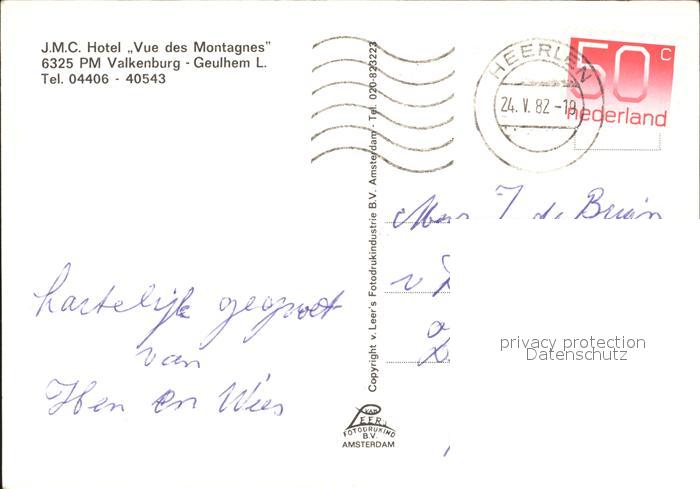 J.M.C. Hotel „Vue des Montagnes”
6325 PM Valkenburg - Geulhem L.
Tel. 04406 - 40543
HEERLEN
24. V. 82 -19
50 C
nederland
Copyright v. Leer's Fotodrukindustrie B.V. Amsterdam - Tel. 020-823223
J de Bruin
hartelijk gegroet
van
Hen en Wies
privacy protection
Datenschutz
VAN
LEER'S
FOTODRUKIND
B.V.
AMSTERDAM